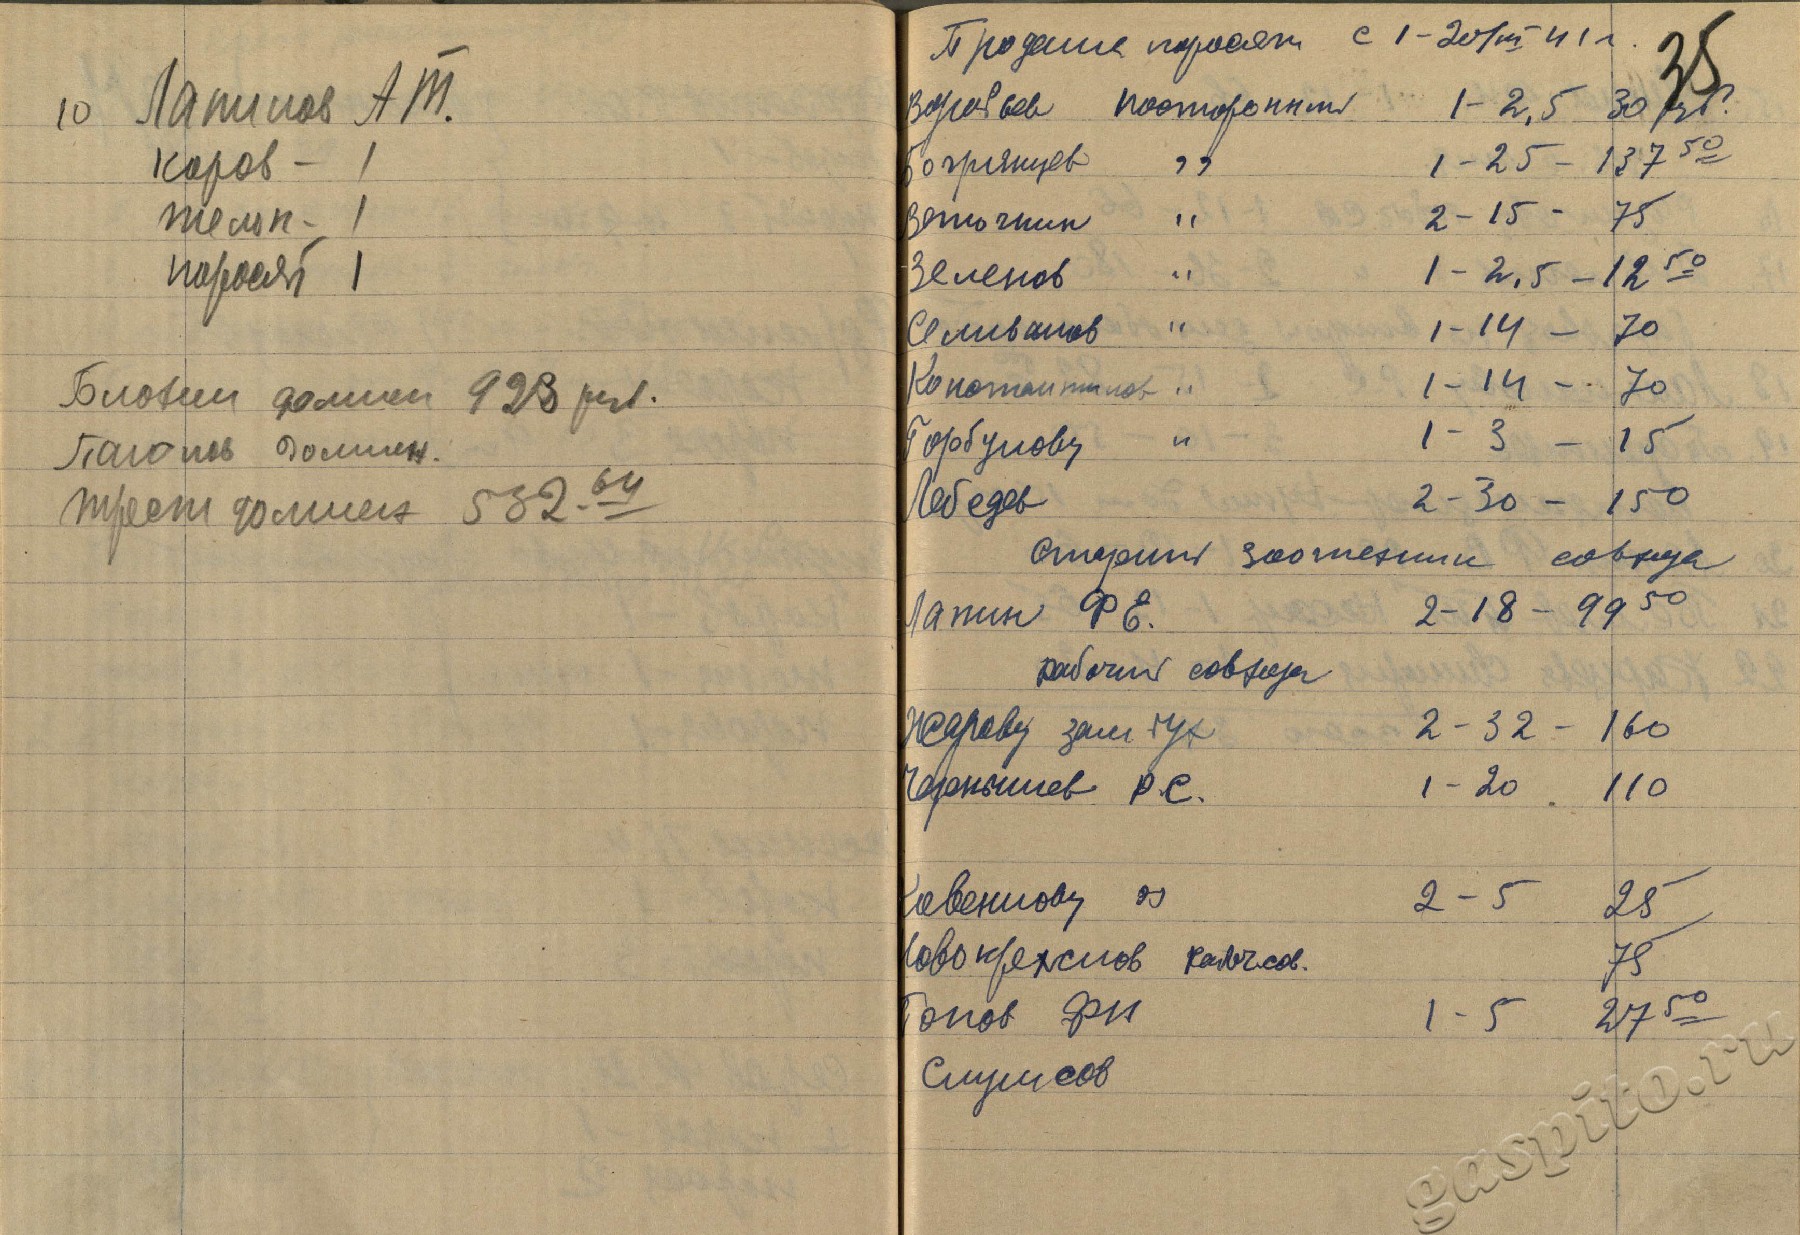 10 Лапинов А Т.
коров - 1
телок - 1
поросят 1
должен 923 руб.
Пагонов должен.
трест должен 532.64
Продаша поросят с 1-20/III 41 г.
35
Воробьев посторонний 1-2,5 30 руб.
Богрянцев " 1-25-137 50
Веточкин " 2-15- 75
Зеленов " 1-2,5-12 50
Селиванов " 1-14- 70
Константинов " 1-14-70
Горбунову " 1-3-15
Лебедев 2-30-150
Старший зоотехник совхоза
Лапин Ф Е. 2-18-99 50
рабочий совхоза
Жарову зам 2-32-160
Чернышев Р.С. 1-20 110
2-5 25
75
Попов ФН 1-5 27 50
gaspito.ru